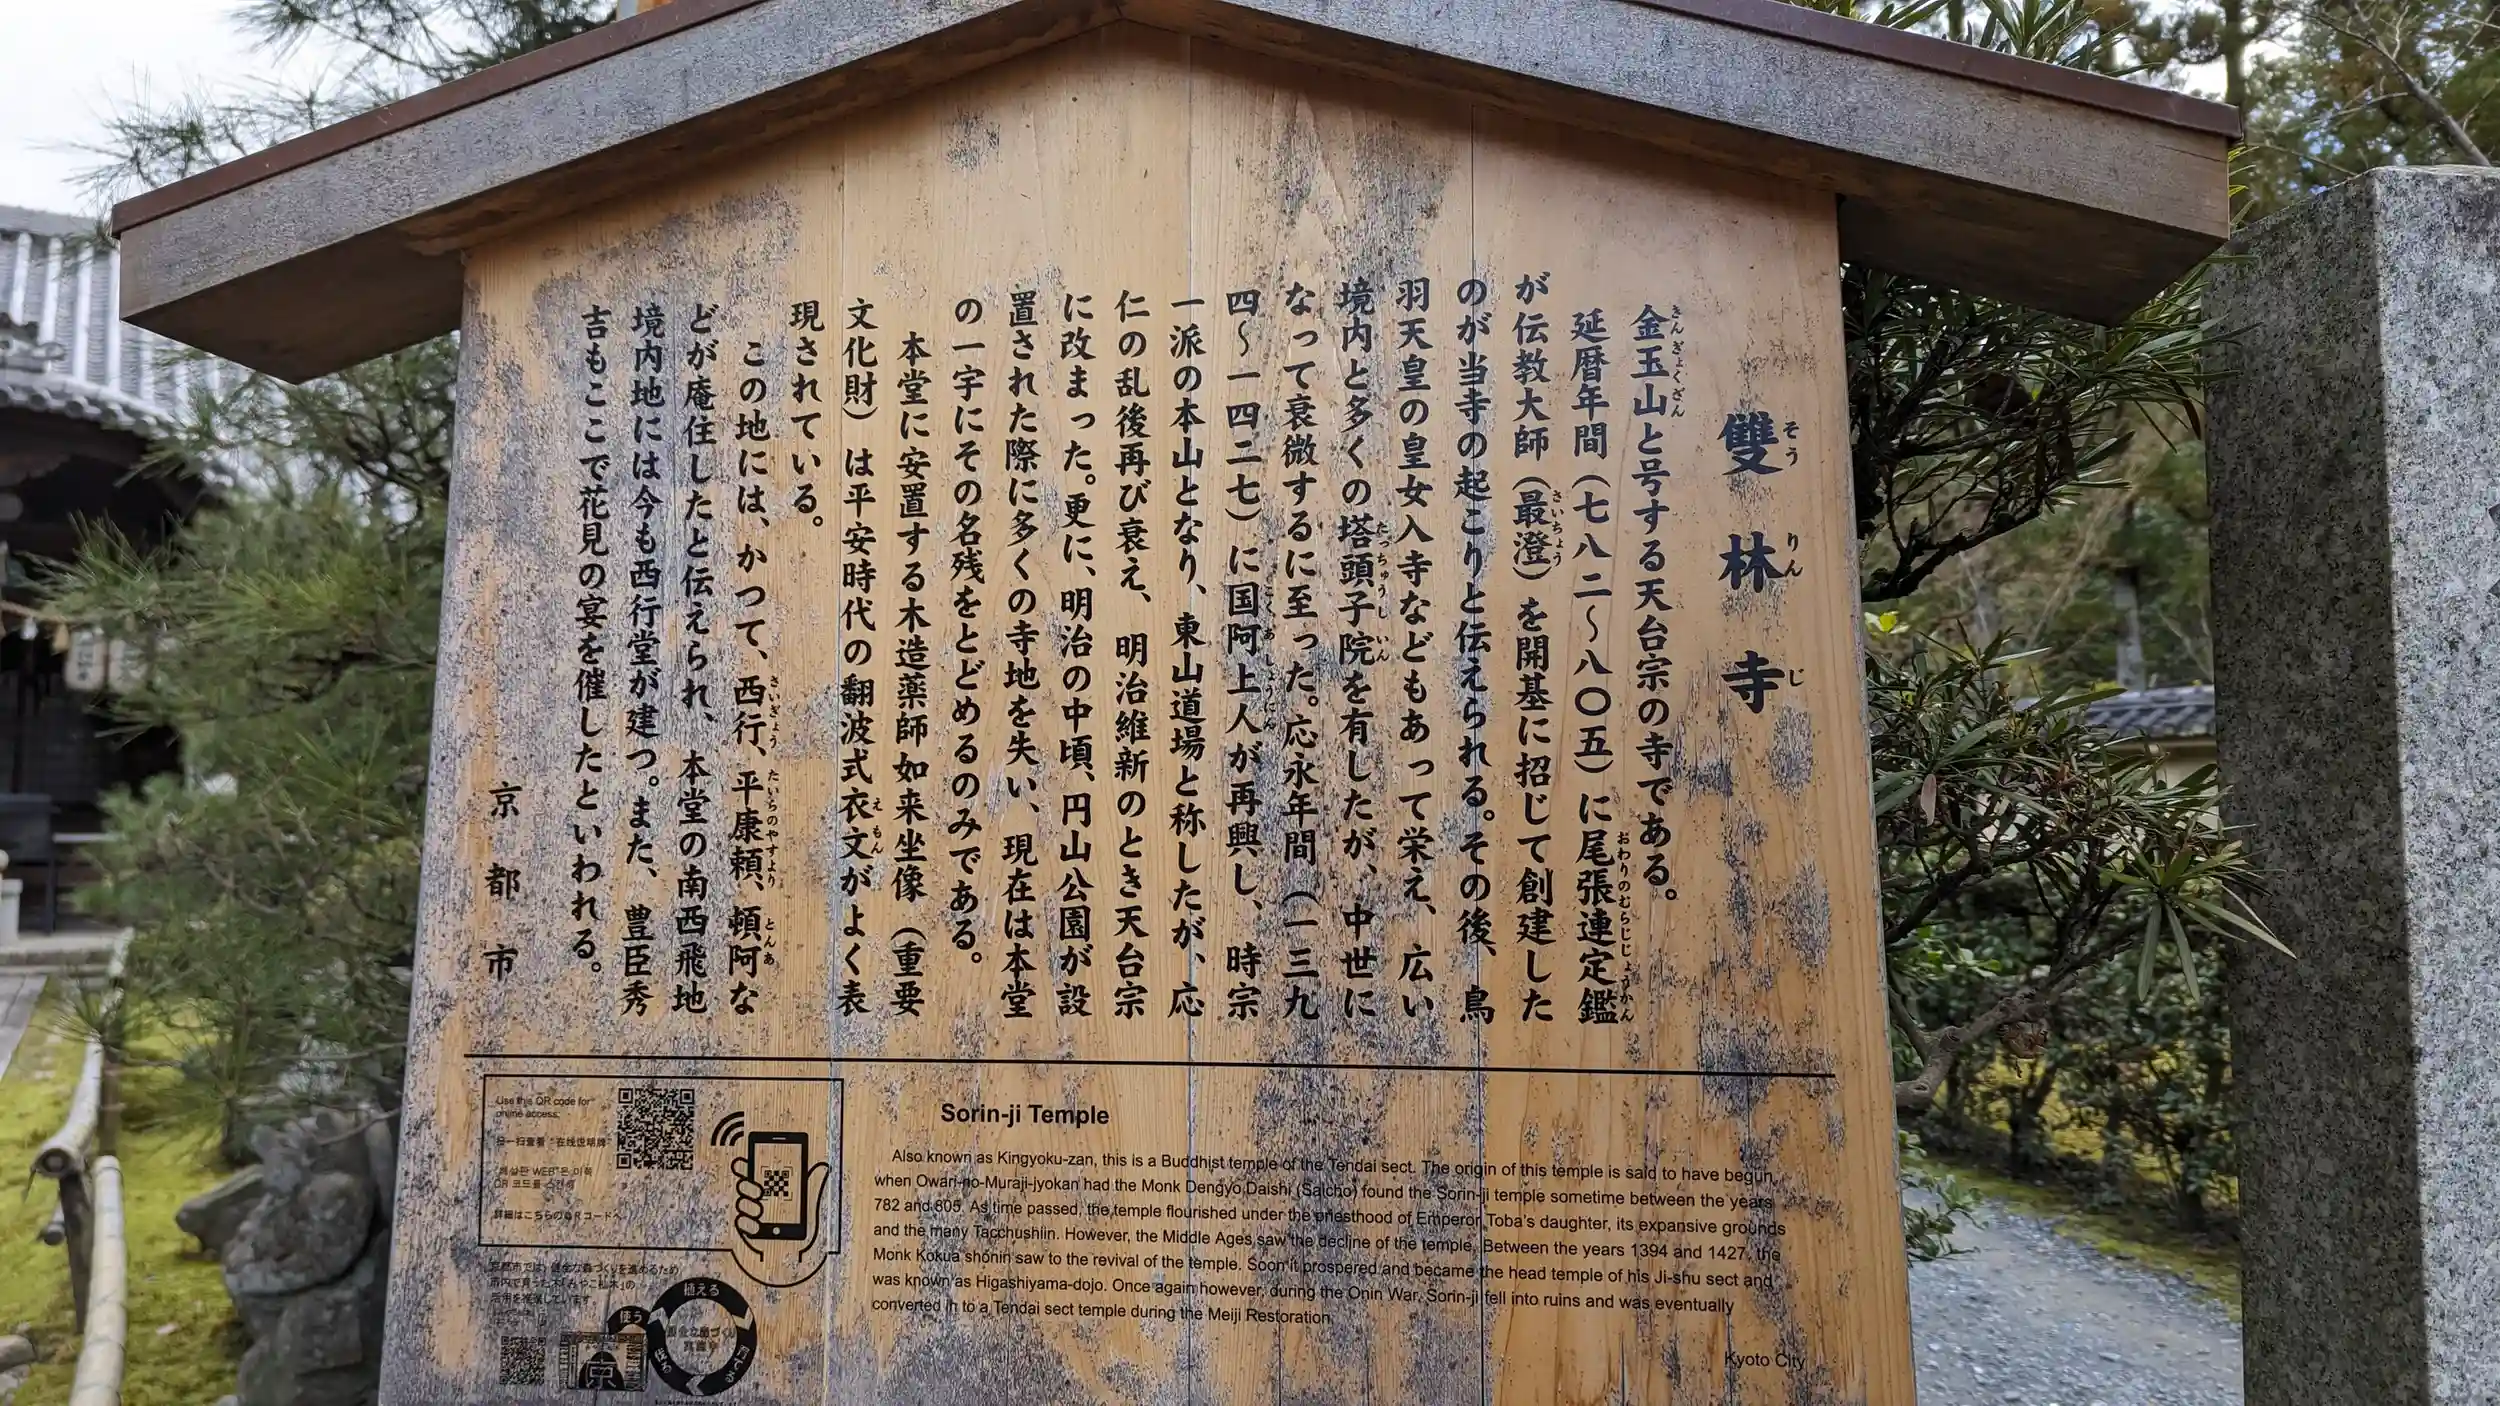 雙林寺
そうりんじ
金玉山と号する天台宗の寺である。
きんぎょくざん
延暦年間（七八二〜八〇五）に尾張連定鑑
おわりのむらじじょうかん
が伝教大師（最澄）を開基に招じて創建した
さいちょう
のが当寺の起こりと伝えられる。その後、鳥
羽天皇の皇女入寺などもあって栄え、広い
境内と多くの塔頭子院を有したが、中世に
たっちゅうしいん
なって衰微するに至った。応永年間（一三九
四〜一四二七）に国阿上人が再興し、時宗
こくあしょうにん
一派の本山となり、東山道場と称したが、応
仁の乱後再び衰え、明治維新のとき天台宗
に改まった。更に、明治の中頃、円山公園が設
置された際に多くの寺地を失い、現在は本堂
の一宇にその名残をとどめるのみである。
本堂に安置する木造薬師如来坐像（重要
文化財）は平安時代の翻波式衣文がよく表
えもん
現されている。
この地には、かつて、西行、平康頼、頓阿な
さいぎょう たいらのやすより とんあ
どが庵住したと伝えられ、本堂の南西飛地
境内地には今も西行堂が建つ。また、豊臣秀
吉もここで花見の宴を催したといわれる。
京都市
Use this QR code for
online access.
扫一扫查看“在线说明牌”
詳細はこちらのQRコードへ
Sorin-ji Temple
Also known as Kingyoku-zan, this is a Buddhist temple of the Tendai sect. The origin of this temple is said to have begun
when Owari-no-Muraji-jyokan had the Monk Dengyo Daishi (Saicho) found the Sorin-ji temple sometime between the years
782 and 805. As time passed, the temple flourished under the priesthood of Emperor Toba's daughter, its expansive grounds
and the many Tacchushiin. However, the Middle Ages saw the decline of the temple. Between the years 1394 and 1427, the
Monk Kokua shonin saw to the revival of the temple. Soon it prospered and became the head temple of his Ji-shu sect and
was known as Higashiyama-dojo. Once again however, during the Onin War, Sorin-ji fell into ruins and was eventually
converted in to a Tendai sect temple during the Meiji Restoration.
Kyoto City
植える
使う
京